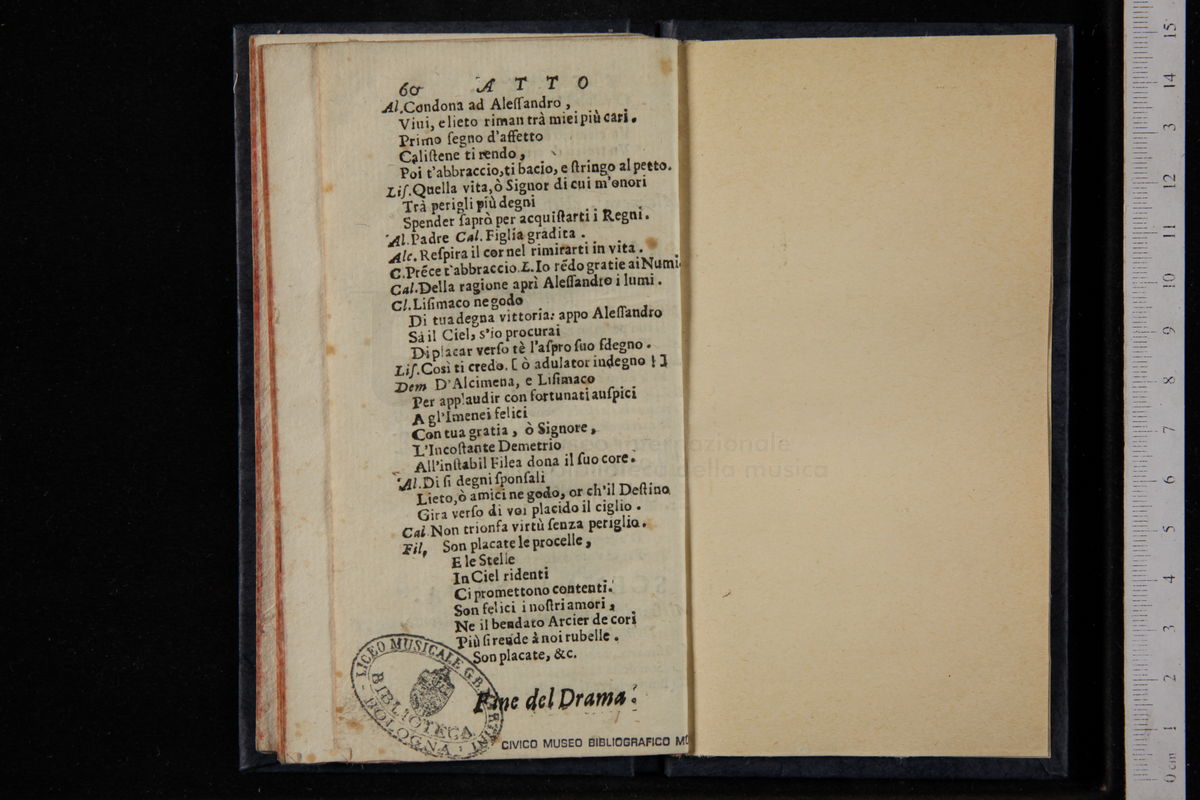 60 ATTO
Al. Condona ad Aleſſandro,
Viui, e lieto riman trà miei più cari.
Primo ſegno d'affetto
Caliſtene ti rendo,
Poi t'abbraccio, ti bacio, e ſtringo al petto.
Liſ. Quella vita, ò Signor di cui m'onori
Trà perigli più degni
Spender ſaprò per acquiſtarti i Regni.
Al. Padre Cal. Figlia gradita.
Alc. Reſpira il cor nel rimirarti in vita.
C. Prẽce t'abbraccio. L. Io rẽdo gratie ai Numi.
Cal. Della ragione aprì Aleſſandro i lumi.
Cl. Liſimaco ne godo
Di tua degna vittoria: appo Aleſſandro
Sà il Ciel, s'io procurai
Di placar verſo tè l'aſpro ſuo ſdegno.
Liſ. Così ti credo. [ ò adulator indegno ! ]
Dem D'Alcimena, e Liſimaco
Per applaudir con fortunati auſpici
A gl'Imenei felici
Con tua gratia, ò Signore,
L'Incoſtante Demetrio
All'inſtabil Filea dona il ſuo core.
Al. Di ſi degni ſponſali
Lieto, ò amici ne godo, or ch'il Deſtino
Gira verſo di voi placido il ciglio.
Cal Non trionfa virtù ſenza periglio.
Fil, Son placate le procelle,
E le Stelle
In Ciel ridenti
Ci promettono contenti.
Son felici i noſtri amori,
Ne il bendato Arcier de cori
Più ſi rende à noi rubelle.
Son placate, &c.
Fine del Drama.
LICEO MUSICALE G.B. MARTINI
BIBLIOTECA
BOLOGNA
CIVICO MUSEO BIBLIOGRAFICO
internazionale
biblioteca della musica
0 cm 1 2 3 4 5 6 7 8 9 10 11 12 3 14 15